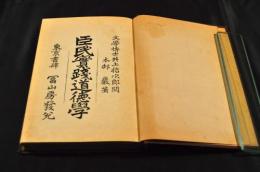 文學博士井上哲次郎閲
木邨 嚴著
臣民實踐道德學
東京書肆 冨山房發兌